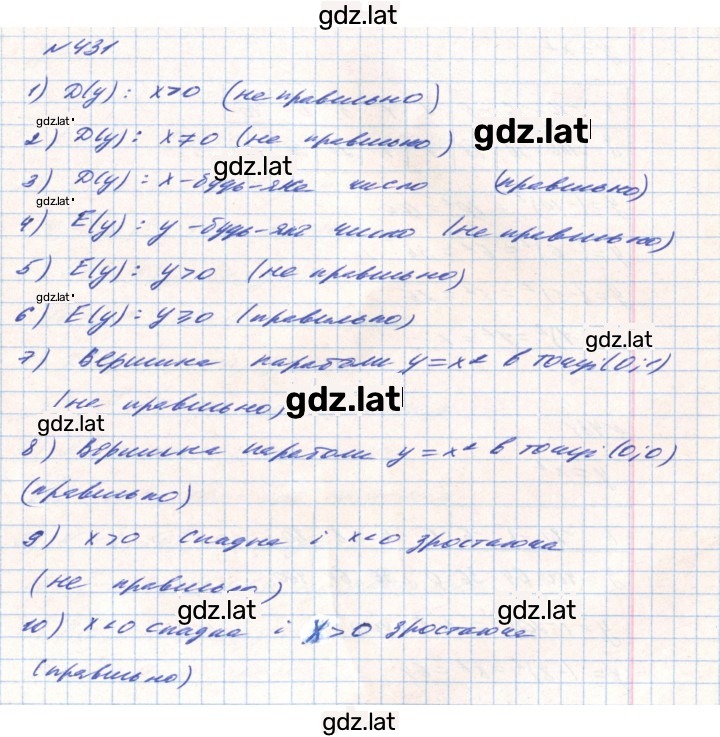 gdz.lat
№431
1) D(y): x>0 (не правильно)
gdz.lat
2) D(y): x≠0 (не правильно)
gdz.lat
gdz.lat
3) D(y): x-будь-яке число (правильно)
gdz.lat
4) E(y): y-будь-яке число (не правильно)
5) E(y): y>0 (не правильно)
gdz.lat
6) E(y): y⩾0 (правильно)
gdz.lat
7) Вершина параболи y=x² в точці (0;1)
(не правильно)
gdz.lat
gdz.lat
8) Вершина параболи y=x² в точці (0;0)
(правильно)
9) x>0 спадна і x<0 зростаюча
(не правильно)
gdz.lat gdz.lat
10) x<0 спадна і x>0 зростаюча
(правильно)
gdz.lat